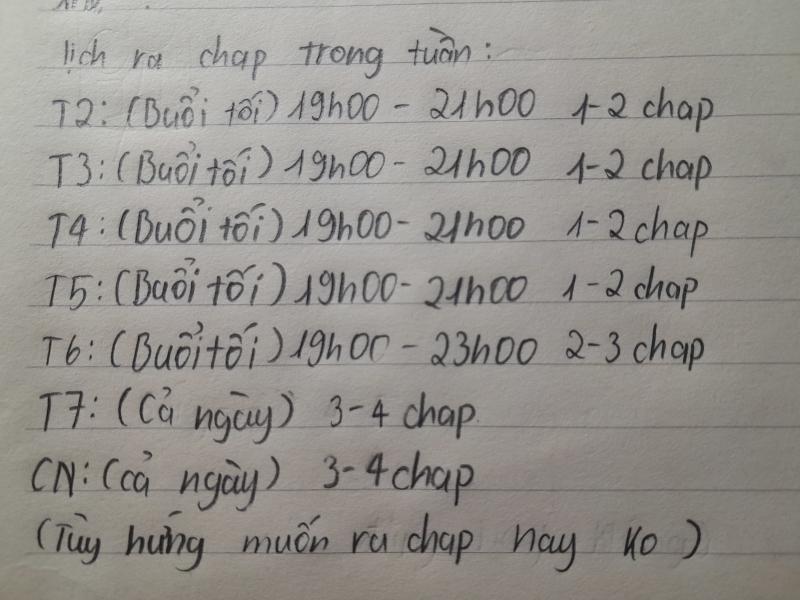 lịch ra chap trong tuần:
T2: (Buổi tối) 19h00 - 21h00 1-2 chap
T3: (Buổi tối) 19h00 - 21h00 1-2 chap
T4: (Buổi tối) 19h00 - 21h00 1-2 chap
T5: (Buổi tối) 19h00 - 21h00 1-2 chap
T6: (Buổi tối) 19h00 - 23h00 2-3 chap
T7: (Cả ngày) 3-4 chap
CN: (cả ngày) 3-4 chap
(Tùy hứng muốn ra chap hay ko)